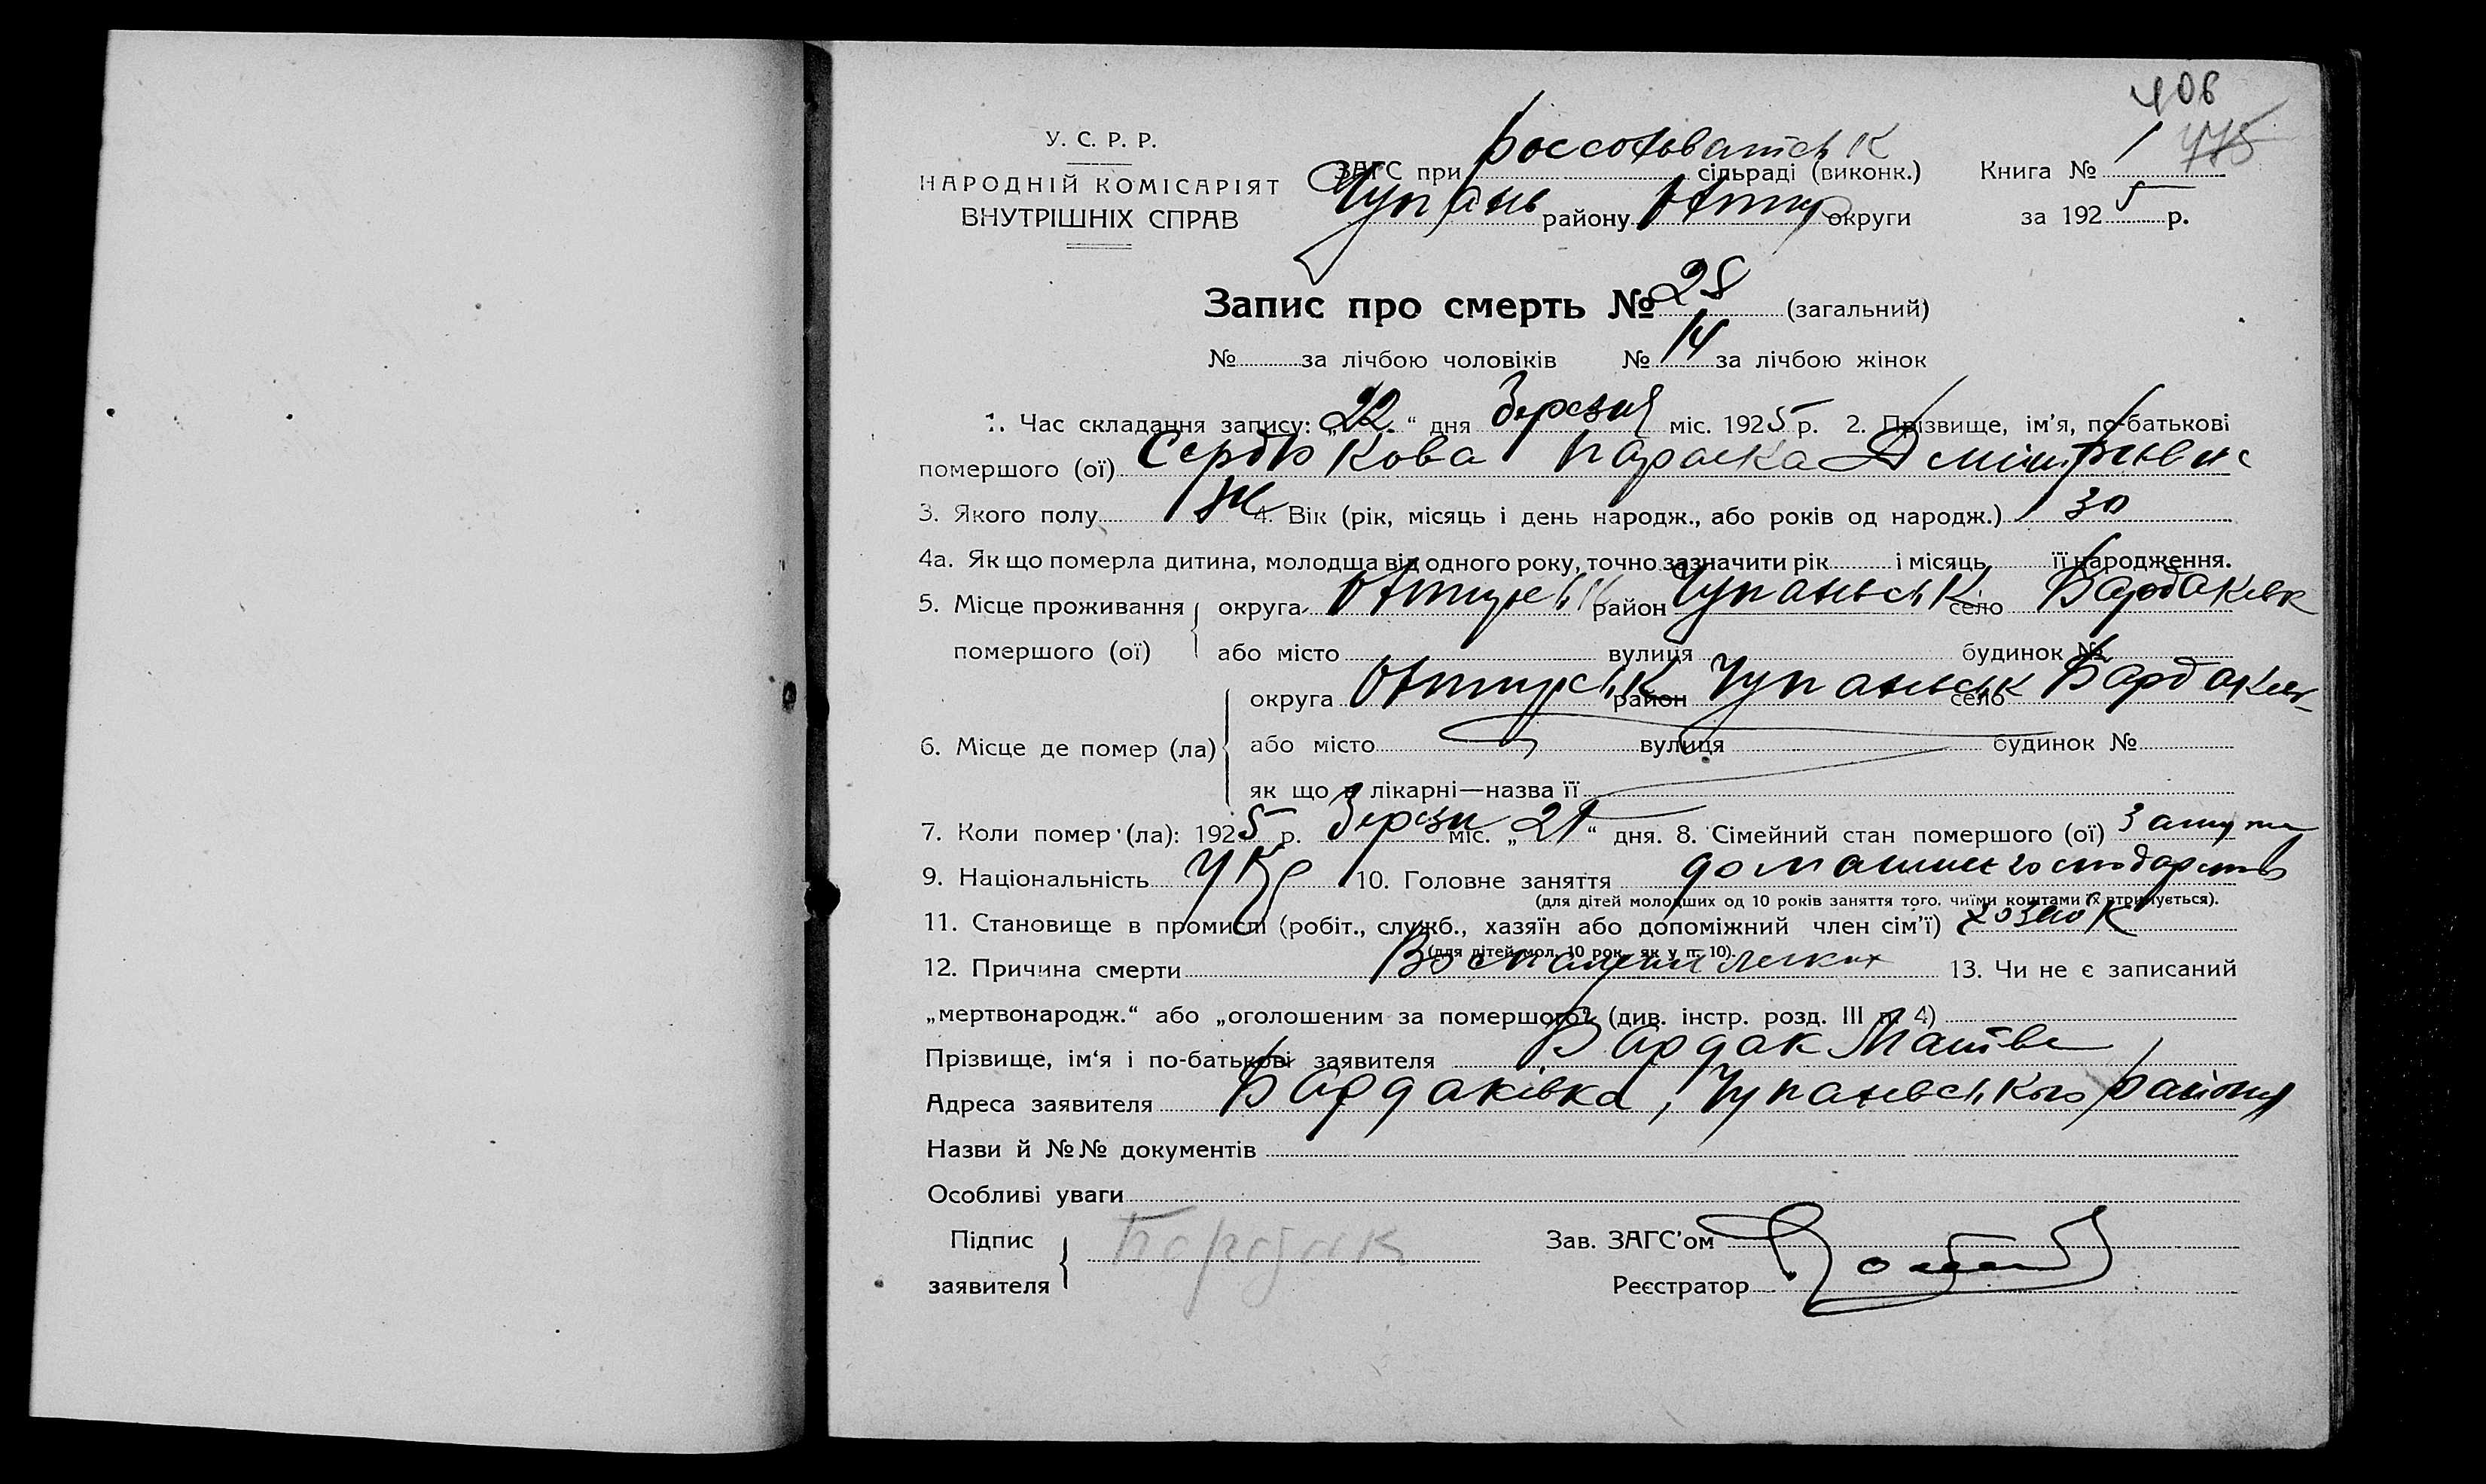 406
У. С. Р. Р.
НАРОДНІЙ КОМІСАРІЯТ
ВНУТРІШНІХ СПРАВ
ЗАГС при Россоховатськ сільраді (виконк.) Книга № 1 475
Чупань району округи за 1925 р.
Запис про смерть № 28 (загальний)
№ за лічбою чоловіків № 14 за лічбою жінок
1. Час складання запису: „22“ дня березня міс. 1925 р. 2. Прізвище, ім'я, по-батькові
помершого (ої) Сердюкова Параска
3. Якого полу Ж 4. Вік (рік, місяць і день народж., або років од народж.) 30
4а. Як що померла дитина, молодша від одного року, точно зазначити рік і місяць її народження.
5. Місце проживання округа район Чупаньськ село Бардаківк
помершого (ої) або місто вулиця будинок №
округа район Чупаньськ село Бардаків
6. Місце де помер (ла) або місто вулиця будинок №
як що в лікарні—назва її
7. Коли помер (ла): 1925 р. Березн міс. „21“ дня. 8. Сімейний стан помершого (ої)
9. Національність Укр 10. Головне заняття
(для дітей молодших од 10 років заняття того, чиїми коштами їх втримується).
11. Становище в промислі (робіт., служб., хазяїн або допоміжний член сім'ї)
(для дітей мол. 10 рок. як у п. 10).
12. Причина смерти легких 13. Чи не є записаний
„мертвонародж.“ або „оголошеним за помершого“ (див. інстр. розд. III п. 4)
Прізвище, ім'я і по-батькові заявителя Бардак Матве
Адреса заявителя Бардаківка, Чупаневського району
Назви й №№ документів
Особливі уваги
Підпис Бардак Зав. ЗАГС'ом
заявителя Реєстратор